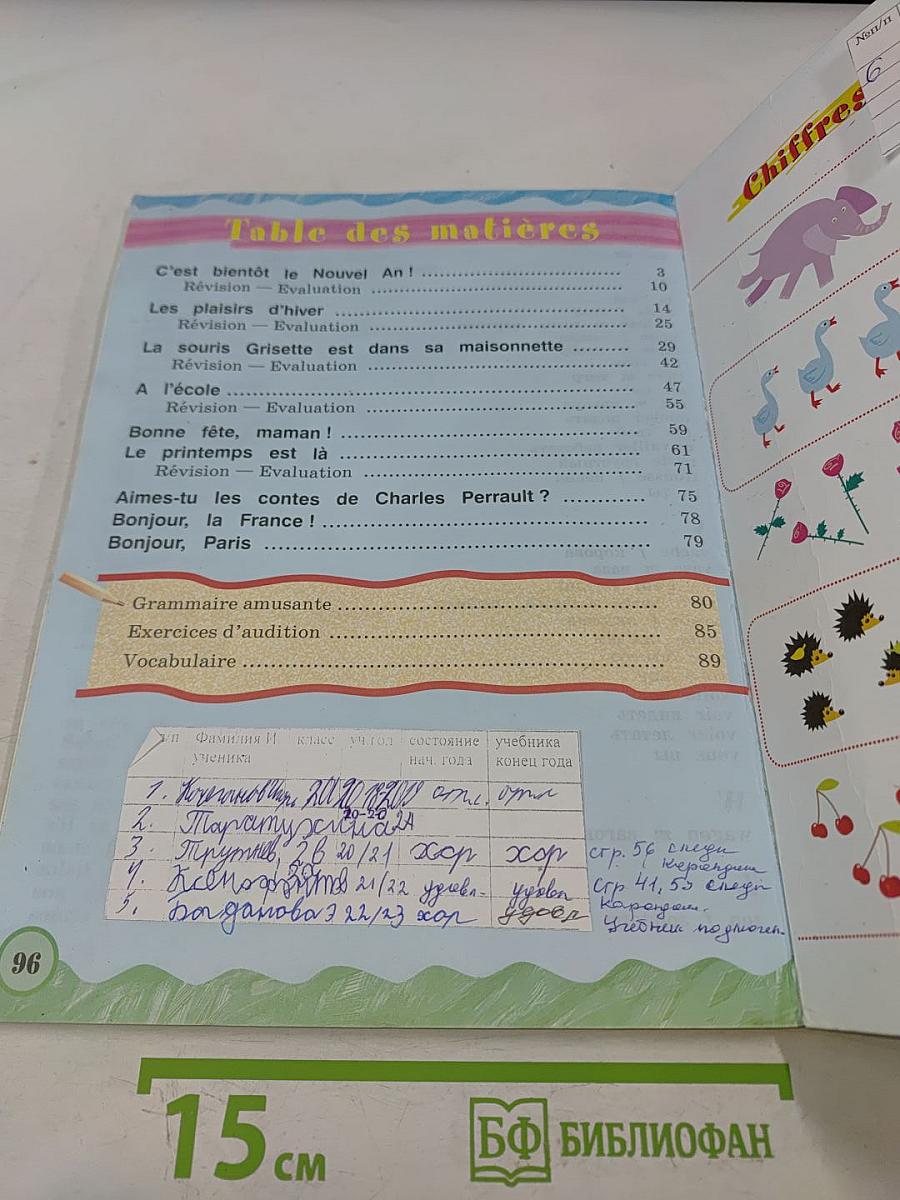 Table des matières
C'est bientôt le Nouvel An ! 3
Révision — Evaluation 10
Les plaisirs d'hiver 14
Révision — Evaluation 25
La souris Grisette est dans sa maisonnette 29
Révision — Evaluation 42
A l'école 47
Révision — Evaluation 55
Bonne fête, maman ! 59
Le printemps est là 61
Révision — Evaluation 71
Aimes-tu les contes de Charles Perrault ? 75
Bonjour, la France ! 78
Bonjour, Paris 79
Grammaire amusante 80
Exercices d'audition 85
Vocabulaire 89
Фамилия И класс уч.год состояние учебника
ученика нач. года конец года
1. отл. отл
2. Таратухина 2А 20-20
3. Трутнев, 2в 20/21 хор хор стр. 56 следы
4. 21/22 удовл. удовл стр 41, 53 следы
карандаш.
5. Богданова Э 22/23 хор удовл Учебник подмочен.
96
Chiffres
№п/п
6
15 см
БФ БИБЛИОФАН